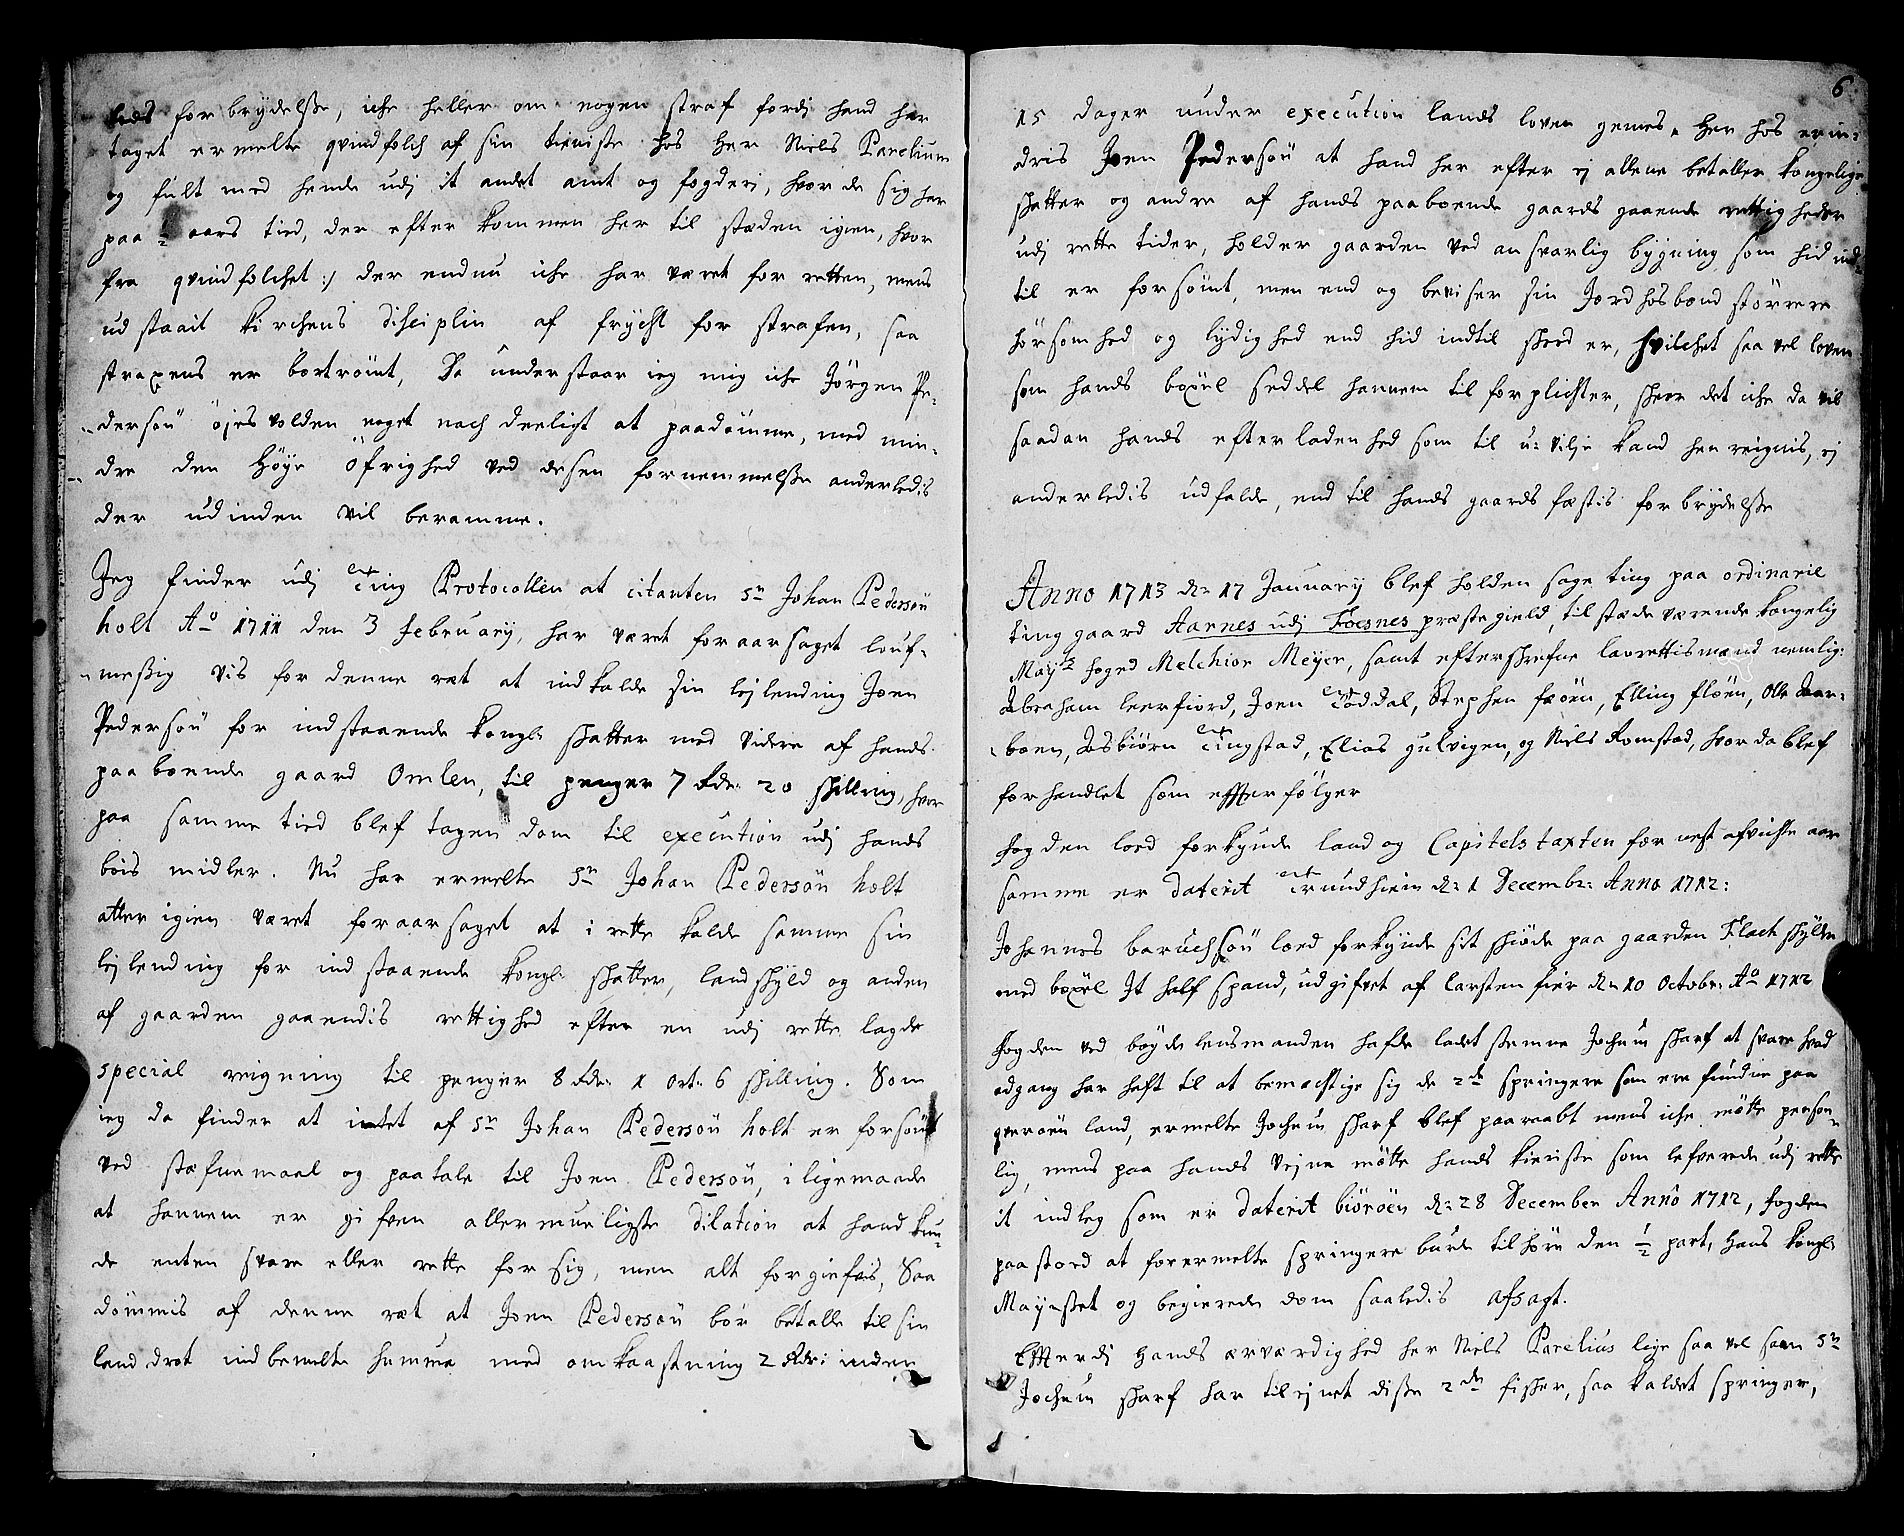 forbrydelsse, iche heller om nogen straf fordj hand har
taget ermelte qvindfolch af sin tieniste hos Her Niels Parelium
og fult med hende udj it andet amt og fogderi, hvor de sig har
paa ½ aars tied, der efter kommen her til steden igien, hvor
fra qvindfolchet :/ der endnu iche har været for retten, mens
udstaait kirchens disciplin af frycht for strafen, saa
straxens er bortrömt, Da understaar ieg mig iche Jörgen Pe-
dersön öjesvolden noget nachdeeligt at paadömme, med min-
dre den Höye Öfrighed ved desen fornemmelsse anderledis
der udinden vil beramme.
Jeg finder udj Ting Protocollen at citanten Sr Johan Pedersön
holt Ao 1711 den 3 February, har været foraarsaget louf-
messig vis for denne ræt at indkalde sin lejlending Joen
Pedersön for indstaaende kongl: skatter med videre af hands
paaboende gaard Omlen, til penger 7 Rdr: 20 skilling, hvor
paa samme tied blef tagen dom til execution udj hands
bois midler. Nu har ermelte Sr Johan Pedersön holt
atter igien været foraarsaget at i rette kalde samme sin
lejlending for indstaaende kongl: skatter, landskyld og anden
af gaarden gaaendis rettighed efter en udj rette lagde
special reigning til penger 8 Rdr: 1 Ort: 6 skilling. Som
ieg da finder at intet af Sr Johan Pedersön holt er forsömt
ved stefnemaal og paatale til Joen Pedersön, i ligemaade
at hannem er gifven allermueligste dilation at hand kun-
de enten svare eller rette for sig, men alt forgiefvis, Saa
dömmis af denne ræt at Joen Pedersön bör betalle til sin
landdrot indbemelte summa med omkaastning 2 Rdr: inden
6
15 dager under execution lands loven gemes. Her hos erin-
dris Joen Pedersön at hand her efter ej allene betaller kongelige
skatter og andre af hands paaboende gaards gaaende rettigheder
udj rette tider, holder gaarden ved ansvarlig bygning som hid ind-
til er forsömt, men end og beviser sin Jordhosbond störrere
hörsomhed og lydighed end hid indtil skeed er, hvilchet saa vel loven
som hands böxel seddel hannem tilforplichter, skeer det iche da vil
saadan hands efterladenhed som til u-vilje kand henreignis, ej
anderledis udfalde, end til hands gaards fæstis forbrydelsse
Anno 1713 dn 17 January blef holden sage ting paa ordinarie
tinggaard Aarnes udj Foesnes præstegield, tilstædeværende kongelig
Mayts foged Melchior Meyer, samt efterskrefne laurettismænd nemlig:
Abraham leerfiord, Joen Toddal, Stephen faöen, Elling flöen, Olle Aar-
boen, Asbiörn Tingstad, Elias gulvigen, og Niels Romstad, hvor da blef
forhandlet som effterfölger
Fogden loed forkynde land og Capitelstaxten for nest afvichte aar
samme er daterit Trundhiem d: 1 Decembr: Anno 1712:
Johannes baruchsön loed forkynde sit sköde paa gaarden Flach skylder
med böxel It half spand, udgifvet af Carsten fier dn 10 Octobr: Ao 1712
Fogden ved böyde lensmanden hafde ladet stemne Jochum skarf at svare hvad
adgang har haft til at bemechtige sig de 2de springere som ere fundne paa
qveröen land, ermelte Jochum skarf blef paaraabt mens iche mötte person-
lig, mens paa hands vejne mötte hands tieniste som lefverede udj rette
it indleg som er daterit biöröen d: 28 December Anno 1712, fogden
paastoed at forermelte springere burde tilhöre den ½ part, Hans Kongl:
Mayestet og begierede dom saaledis afsagt.
Effterdj Hands ærværdighed her Niels Parelius lige saa vel som Sr
Jochum skarf har tilejnet disse 2de fisker, saa kaldet springer,